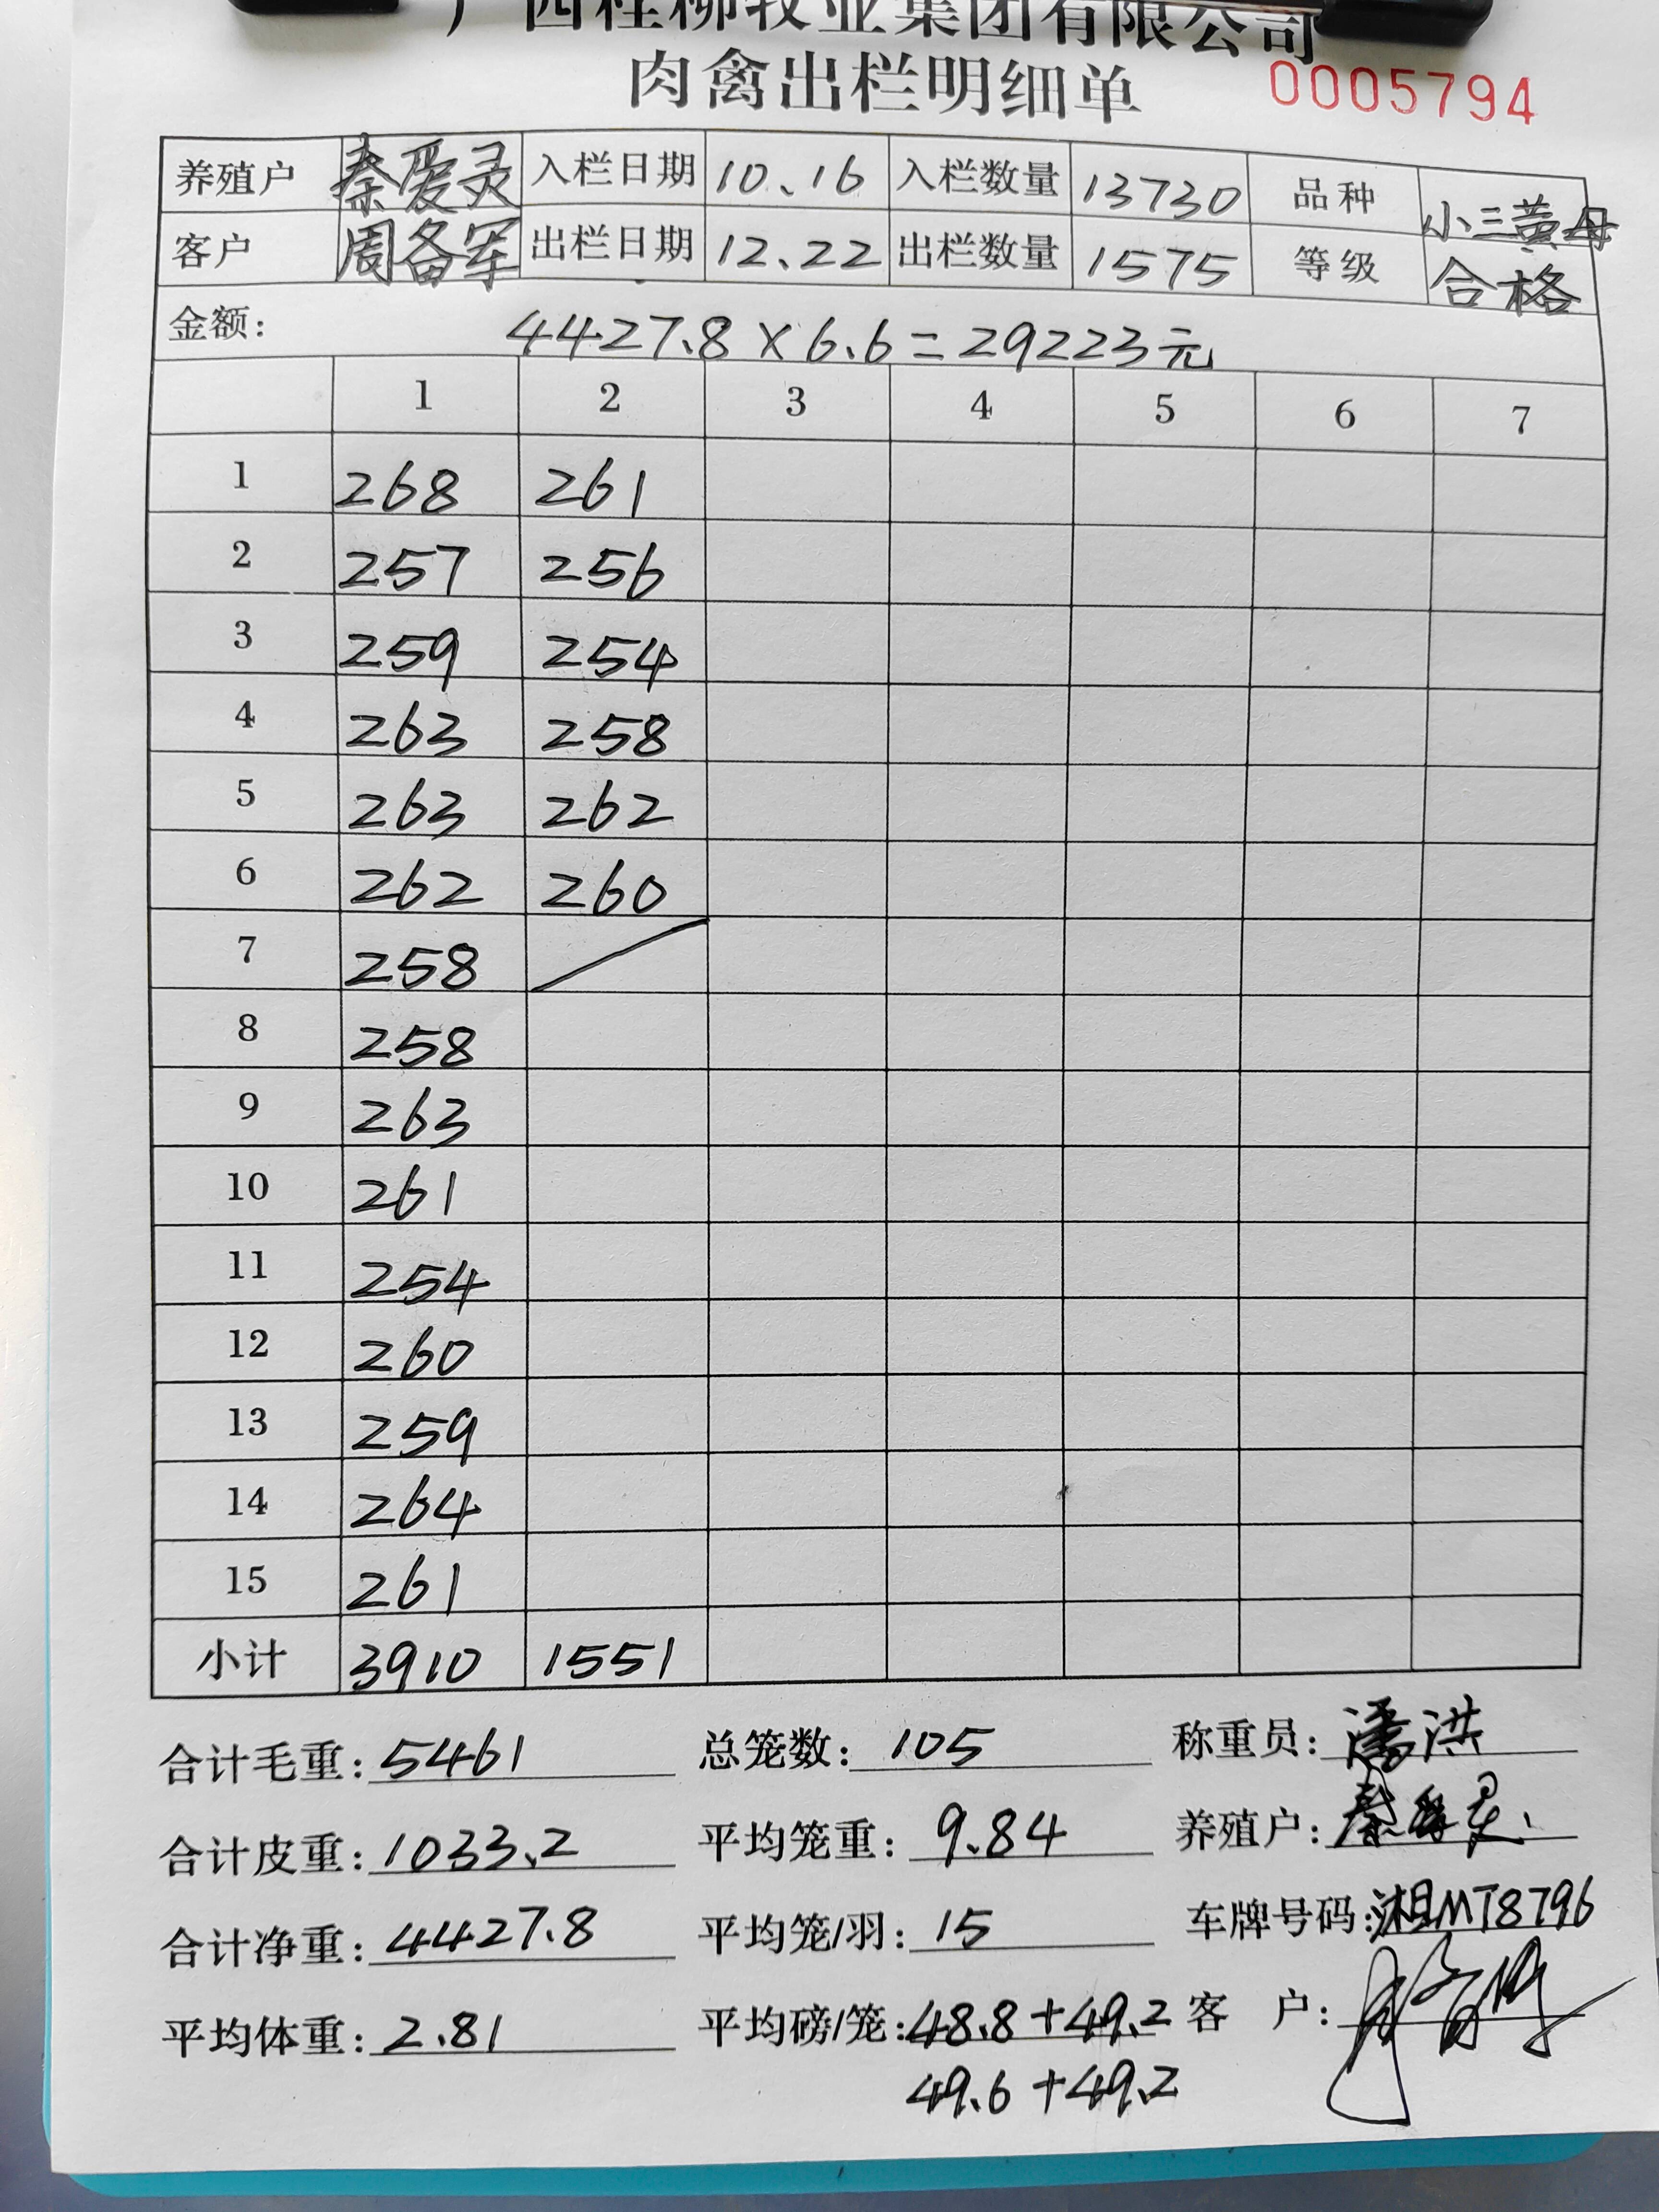 广西桂柳牧业集团有限公司
肉禽出栏明细单 0005794
养殖户 秦爱灵 入栏日期 10.16 入栏数量 13730 品种 小三黄母
客户 周备军 出栏日期 12.22 出栏数量 1575 等级 合格
金额: 4427.8×6.6=29223元
1 2 3 4 5 6 7
1 268 261
2 257 256
3 259 254
4 263 258
5 263 262
6 262 260
7 258
8 258
9 263
10 261
11 254
12 260
13 259
14 264
15 261
小计 3910 1551
合计毛重: 5461 总笼数: 105 称重员: 潘洪
合计皮重: 1033.2 平均笼重: 9.84 养殖户: 秦爱灵
合计净重: 4427.8 平均笼/羽: 15 车牌号码: 湘MT8796
平均体重: 2.81 平均磅/笼: 48.8+49.2 客 户:
49.6+49.2